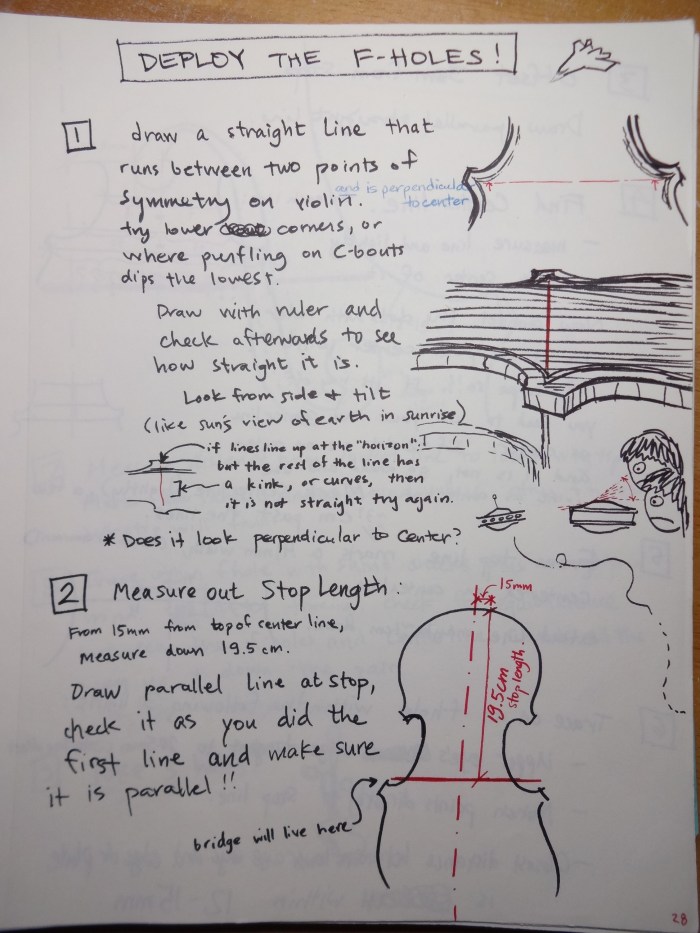 DEPLOY THE F-HOLES!
1
draw a straight line that
runs between two points of
symmetry on violin.
and is perpendicular
to center
try lower corners, or
where purfling on C-bouts
dips the lowest.
Draw with ruler and
check afterwards to see
how straight it is.
Look from side & tilt
(like sun's view of earth in sunrise)
if lines line up at the "horizon",
but the rest of the line has
a kink, or curves, then
it is not straight try again.
* Does it look perpendicular to center?
2 Measure out Stop Length:
From 15mm from top of center line,
measure down 19.5 cm.
Draw parallel line at stop,
check it as you did the
first line and make sure
it is parallel!!
bridge will live here
15mm
19.5cm
stop length.
28